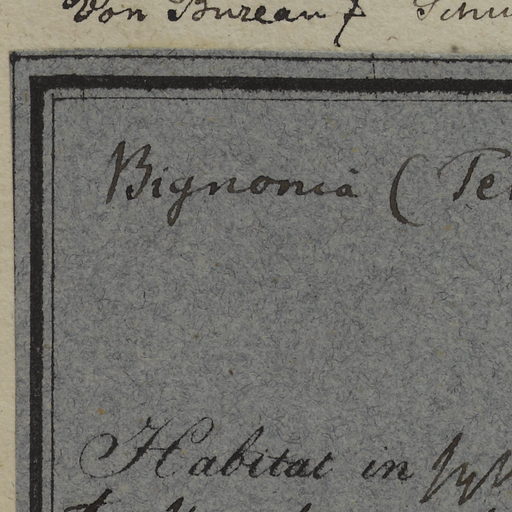 Von Bureau f
Bignonia (
Habitat in